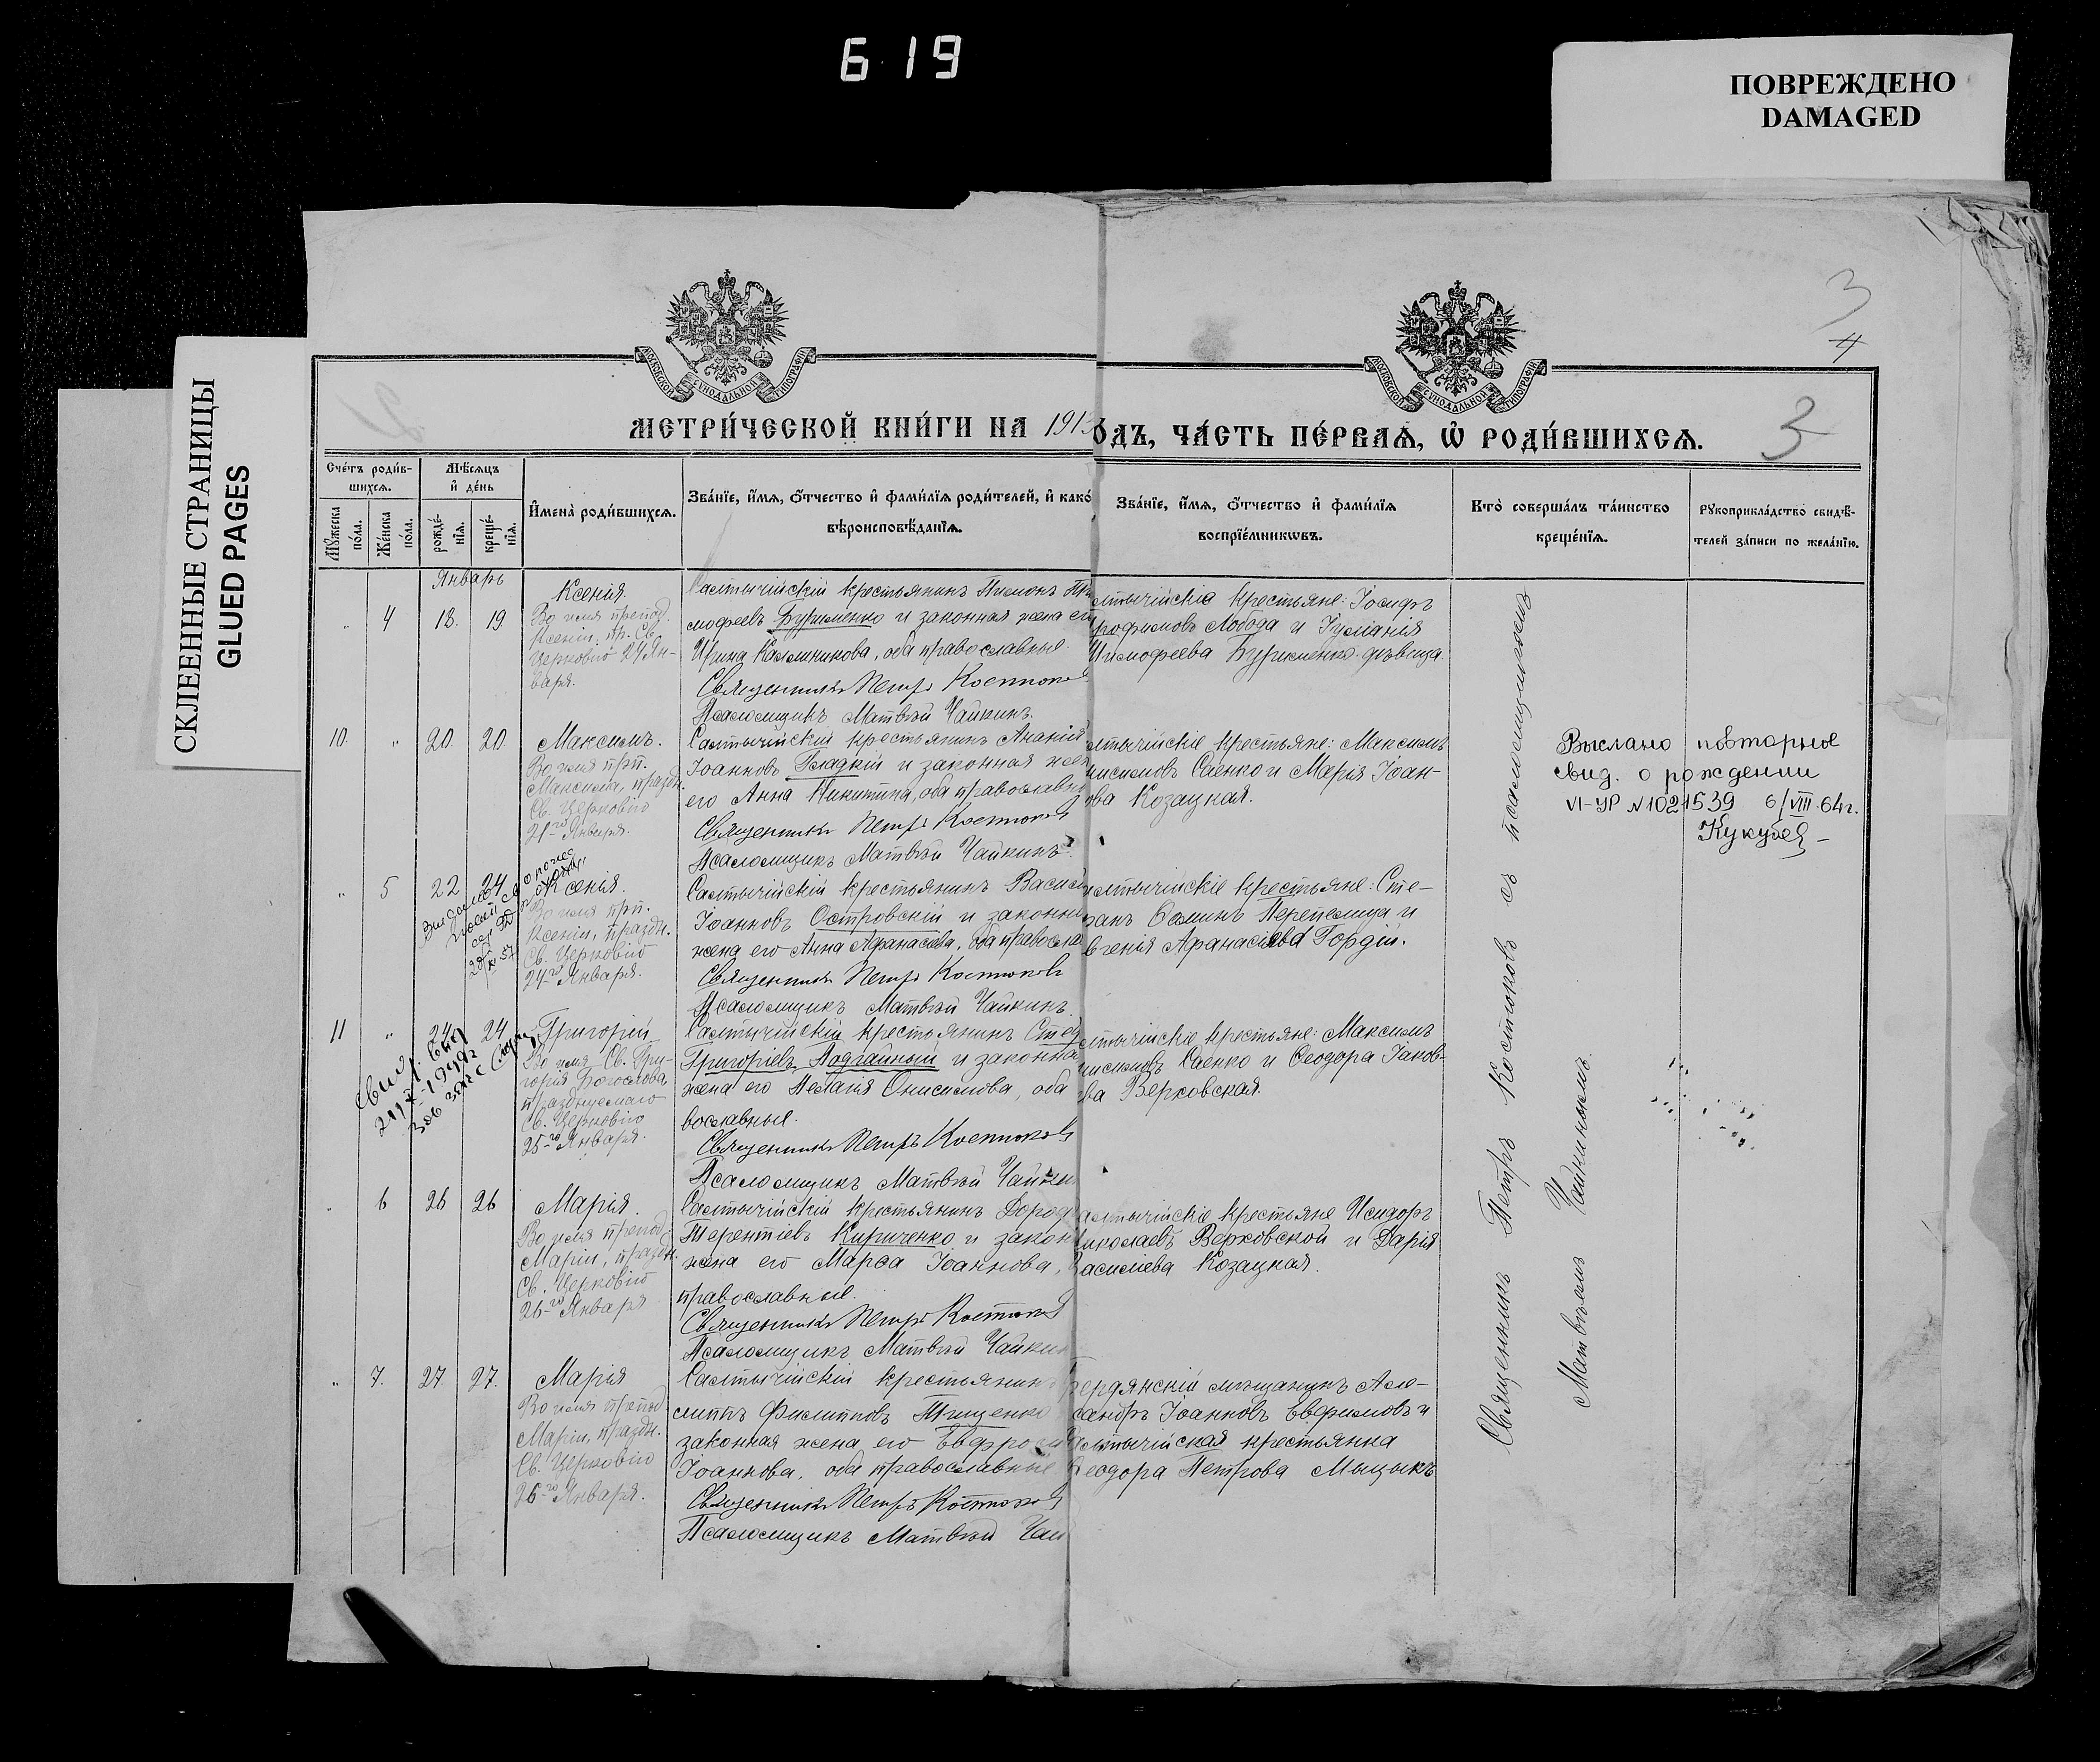 6 19
ПОВРЕЖДЕНО
DAMAGED
СКЛЕЕННЫЕ СТРАНИЦЫ
GLUED PAGES
МОСКОВСКОЙ СѴНОДАЛЬНОЙ ТИПОГРАФІИ
МОСКОВСКОЙ СѴНОДАЛЬНОЙ ТИПОГРАФІИ
3
4
3
МЕТРИ́ЧЕСКОЙ КНИ́ГИ НА 1913
ОДЪ, ЧА́СТЬ ПЕ́РВАѦ, Ѡ҆ РОДИ́ВШИХСѦ.
Сче́тъ роди́в-
шихсѧ.
Мꙋ́жеска
по́ла.
Же́нска
по́ла.
Мѣ́сѧцъ
и҆ де́нь
рожде́-
нїѧ.
креще́-
нїѧ.
И҆мена̀ роди́вшихсѧ.
Зва́нїе, и҆́мѧ, ѻ҆́тчество и҆ фами́лїѧ роди́телей, и҆ како́
вѣроисповѣ́данїѧ.
Зва́нїе, и҆́мѧ, ѻ҆́тчество и҆ фами́лїѧ
воспрїе́мникѡвъ.
Кто̀ соверша́лъ та́инство
креще́нїѧ.
Рꙋкоприкла́дство свидѣ́-
телей за́писи по жела́нїю.
Январь
„ 4 18. 19
Ксенія
Во имя препод.
Ксеніи, пр. Св.
Церковію 24 Ян-
варя.
Салтычійскій крестьянинъ Пименъ Ти
мофеевъ Бурименко и законная жена ег
Ирина Калиникова, оба православные.
Священникъ Петръ Костюковъ
Псаломщикъ Матвѣй Чайкинъ.
лтычійскіе крестьяне: Іосифъ
рофимовъ Лобода и Іуліанія
Тимофеева Бурименко дѣвица.
10. „ 20. 20.
Максимъ.
Во имя прп.
Максима, праздн.
Св. Церковію
21-го Января.
Салтычійскій крестьянинъ Ананій
Іоанновъ Гладкій и законная жен
его Анна Никитина, оба православны
Священникъ Петръ Костюковъ
Псаломщикъ Матвѣй Чайкинъ.
лтычійскіе крестьяне: Максимъ
нисимовъ Саенко и Марія Іоан-
ова Козацкая.
Выслано повторное
свид. о рождении
VI-УР N1021539 6/VIII-64г.
„ 5 22 24
Ксенія.
Во имя прп.
Ксеніи, праздн.
Св. Церковію
24-го Января.
Салтычійскій крестьянинъ Васил
Іоанновъ Островскій и законна
жена его Анна Афанасіева, оба правосла
Священникъ Петръ Костюковъ
Псаломщикъ Матвѣй Чайкинъ.
лтычійскіе крестьяне: Сте-
фанъ Осиинъ Перепелица и
вгенія Афанасіева Гордій.
11 „ 24 24
Григорій
Во имя Св. Гри-
горія Богослова
празднуемаго
Св. Церковію
25-го Января.
Салтычійскій крестьянинъ Стеф
Григоріевъ Подгайный и законна
жена его Пелагія Онисимова, оба
вославные.
Священникъ Петръ Костюковъ
Псаломщикъ Матвѣй Чайки
лтычійскіе крестьяне: Максимъ
нисимовъ Саенко и Ѳеодора Іаков-
ва Верковская.
„ 6 26 26
Марія.
Во имя препод.
Маріи, праздн.
Св. Церковію
26-го Января
Салтычійскій крестьянинъ Дороф
Терентіевъ Кириченко и закон
жена его Марѳа Іоаннова,
православные.
Священникъ Петръ Костюковъ
Псаломщикъ Матвѣй Чайкин
алтычійскіе крестьяне Исидоръ
Николаевъ Верковской и Дарія
Василіева Козацкая.
„ 7. 27. 27.
Марія
Во имя препод.
Маріи, праздн.
Св. Церковію
26-го Января.
Салтычійскій крестьянин
липпъ Филипповъ Тищенко
законная жена его Евфроси
Іоаннова, оба православные
Священникъ Петръ Костюковъ
Псаломщикъ Матвѣй Чай
Бердянскій мѣщанинъ Але-
сандръ Іоанновъ Евфимовъ и
алтычійская крестьянка
Ѳеодора Петрова Мыцыкъ
Священникъ Петръ Костюковъ съ псаломщикомъ
Матвѣемъ Чайкинымъ.